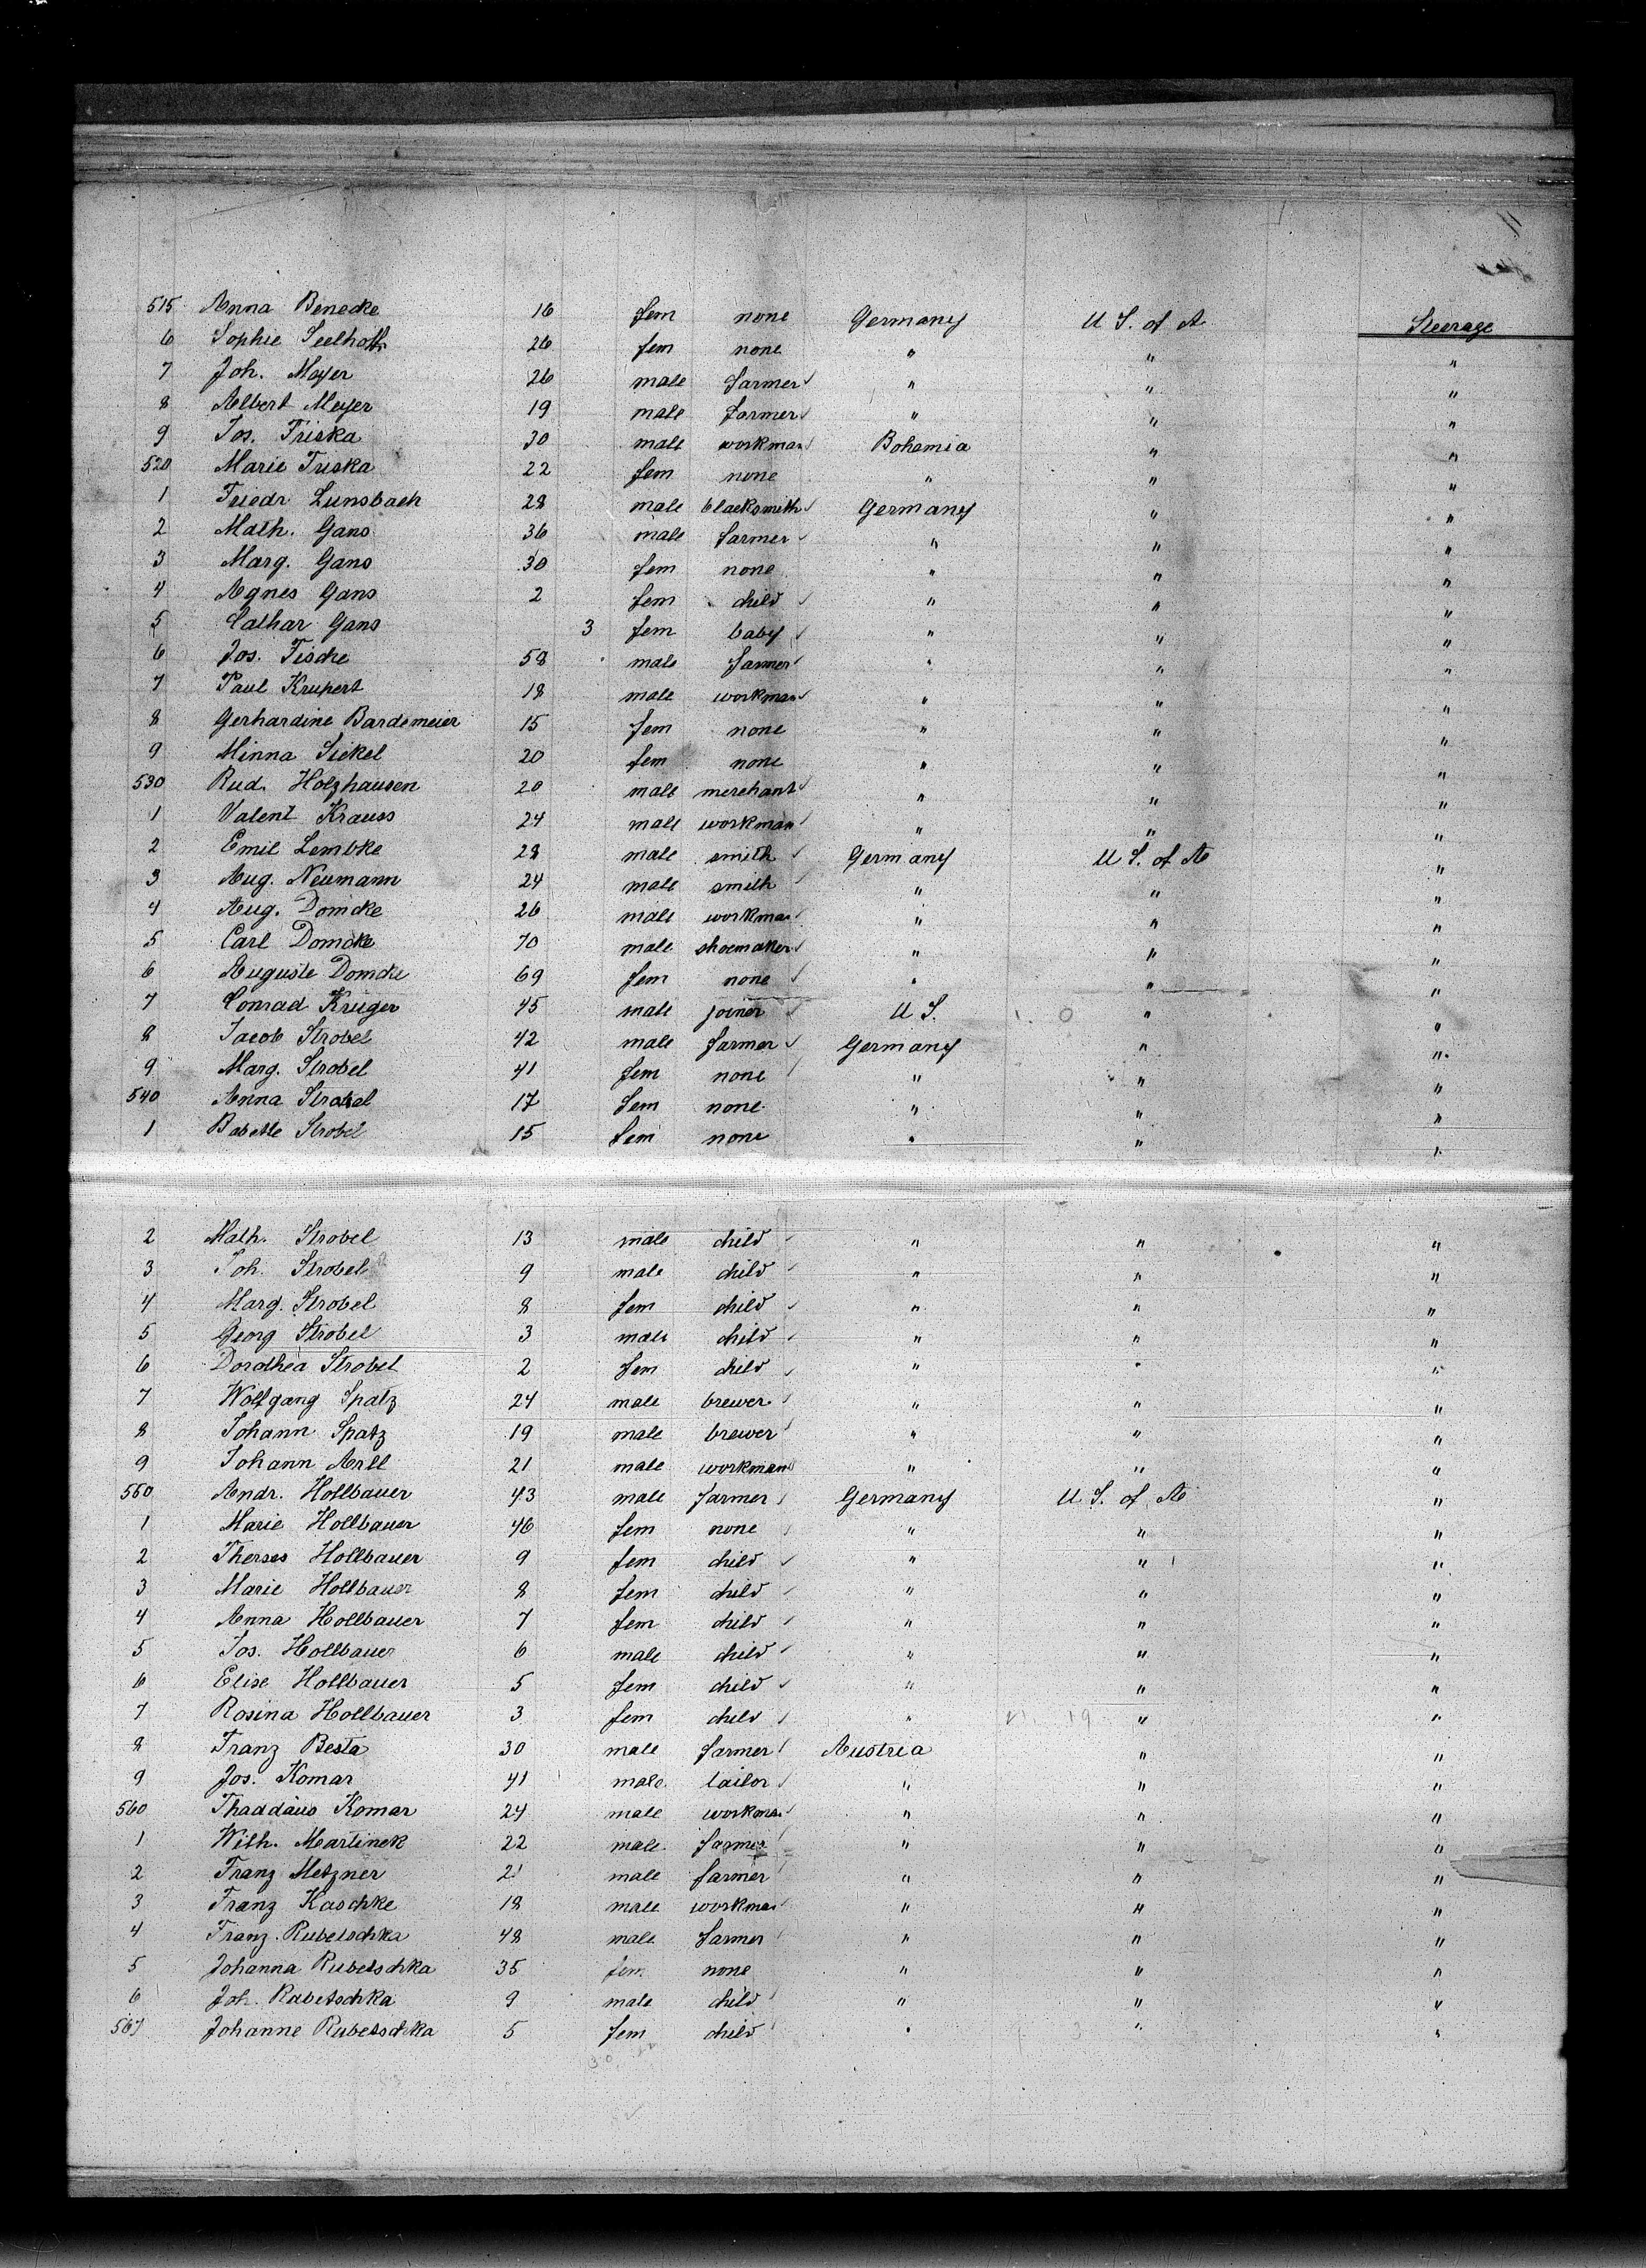 515 Anna Benecke 16 fem none Germany U S. of A Steerage
6 Sophie Seelhoth 26 fem none " " "
7 Joh. Mayer 26 male farmer " " "
8 Albert Meyer 19 male farmer " " "
9 Jos. Triska 30 male workman Bohemia " "
520 Marie Triska 22 fem none " " "
1 Friedr Lunsbach 28 male blacksmith Germany " "
2 Math. Gans 36 male farmer " " "
3 Marg. Gans 30 fem none " " "
4 Agnes Gans 2 fem child " " "
5 Cathar Gans 3 fem baby " " "
6 Jos. Tische 58 male farmer " " "
7 Paul Krupert 18 male workman " " "
8 Gerhardine Bardemeier 15 fem none " " "
9 Minna Sickel 20 fem none " " "
530 Rud. Holzhausen 20 male merchant " " "
1 Valent Krauss 24 male workman " " "
2 Emil Lembke 28 male smith Germany U S. of A "
3 Aug. Neumann 24 male smith " " "
4 Aug. Domcke 26 male workman " " "
5 Carl Domcke 70 male shoemaker " " "
6 Auguste Domcke 69 fem none " " "
7 Conrad Krüger 45 male joiner U S. " "
8 Jacob Strobel 42 male farmer Germany " "
9 Marg. Strobel 41 fem none " " "
540 Anna Strobel 17 fem none " " "
1 Babette Strobel 15 fem none " " "
2 Math. Strobel 13 male child " " "
3 Joh. Strobel 9 male child " " "
4 Marg. Strobel 8 fem child " " "
5 Georg Strobel 3 male child " " "
6 Dorothea Strobel 2 fem child " " "
7 Wolfgang Spatz 24 male brewer " " "
8 Johann Spatz 19 male brewer " " "
9 Johann Arll 21 male workman " " "
550 Andr. Hollbauer 43 male farmer Germany U S. of A "
1 Marie Hollbauer 46 fem none " " "
2 Therses Hollbauer 9 fem child " " "
3 Marie Hollbauer 8 fem child " " "
4 Anna Hollbauer 7 fem child " " "
5 Jos. Hollbauer 6 male child " " "
6 Elise Hollbauer 5 fem child " " "
7 Rosina Hollbauer 3 fem child " " "
8 Franz Besta 30 male farmer Austria " "
9 Jos. Komar 41 male tailor " " "
560 Thaddäus Komar 24 male workman " " "
1 Wilh. Martinek 22 male farmer " " "
2 Franz Metzner 21 male farmer " " "
3 Franz Kaschke 18 male workman " " "
4 Franz Rubetschka 48 male farmer " " "
5 Johanna Rubetschka 35 fem none " " "
6 Joh. Rubetschka 9 male child " " "
567 Johanne Rubetschka 5 fem child " " "